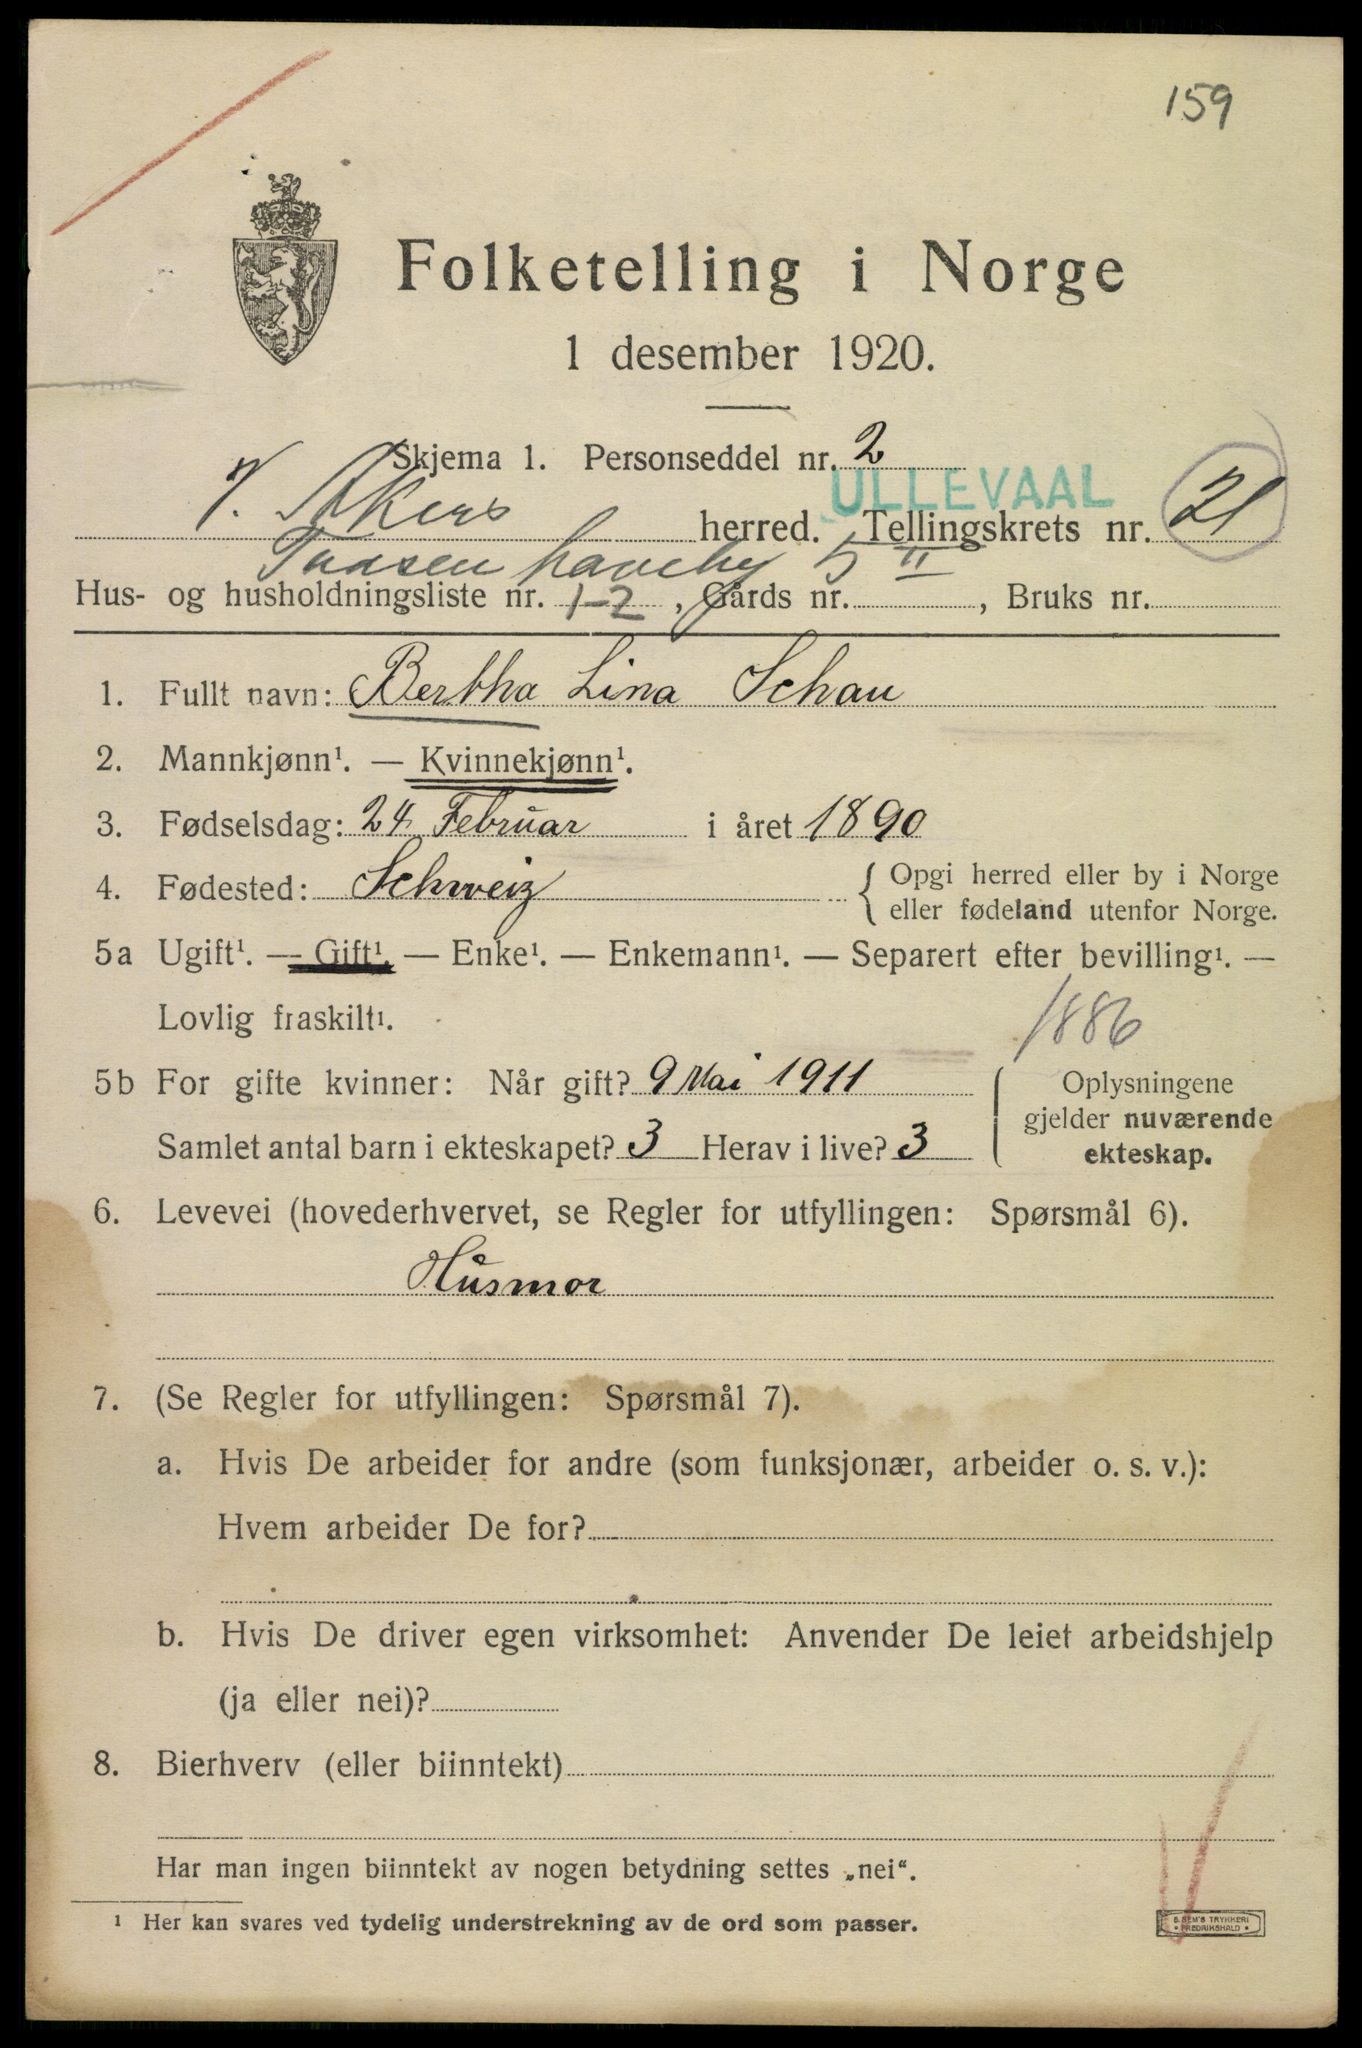 159
Folketelling i Norge
1 desember 1920.
Skjema 1. Personseddel nr. 2
ULLEVAAL
V. Akers herred. Tellingskrets nr. 21
Taasen haveby 5 II
Hus- og husholdningsliste nr. 1-2, Gårds nr. , Bruks nr.
1. Fullt navn: Bertha Lina Schau
2. Mannkjønn¹. — Kvinnekjønn¹.
3. Fødselsdag: 24 Februar i året 1890
4. Fødested: Schweiz { Opgi herred eller by i Norge
eller fødeland utenfor Norge.
5a Ugift¹. — Gift¹. — Enke¹. — Enkemann¹. — Separert efter bevilling¹. —
Lovlig fraskilt¹.
1886
5b For gifte kvinner: Når gift? 9 Mai 1911
Samlet antal barn i ekteskapet? 3 Herav i live? 3
Oplysningene
gjelder nuværende
ekteskap.
6. Levevei (hovederhvervet, se Regler for utfyllingen: Spørsmål 6).
Husmor
7. (Se Regler for utfyllingen: Spørsmål 7).
a. Hvis De arbeider for andre (som funksjonær, arbeider o. s. v.):
Hvem arbeider De for?
b. Hvis De driver egen virksomhet: Anvender De leiet arbeidshjelp
(ja eller nei)?
8. Bierhverv (eller biinntekt)
Har man ingen biinntekt av nogen betydning settes „nei“.
¹ Her kan svares ved tydelig understrekning av de ord som passer.
E. SEM'S TRYKKERI
• FREDRIKSHALD •